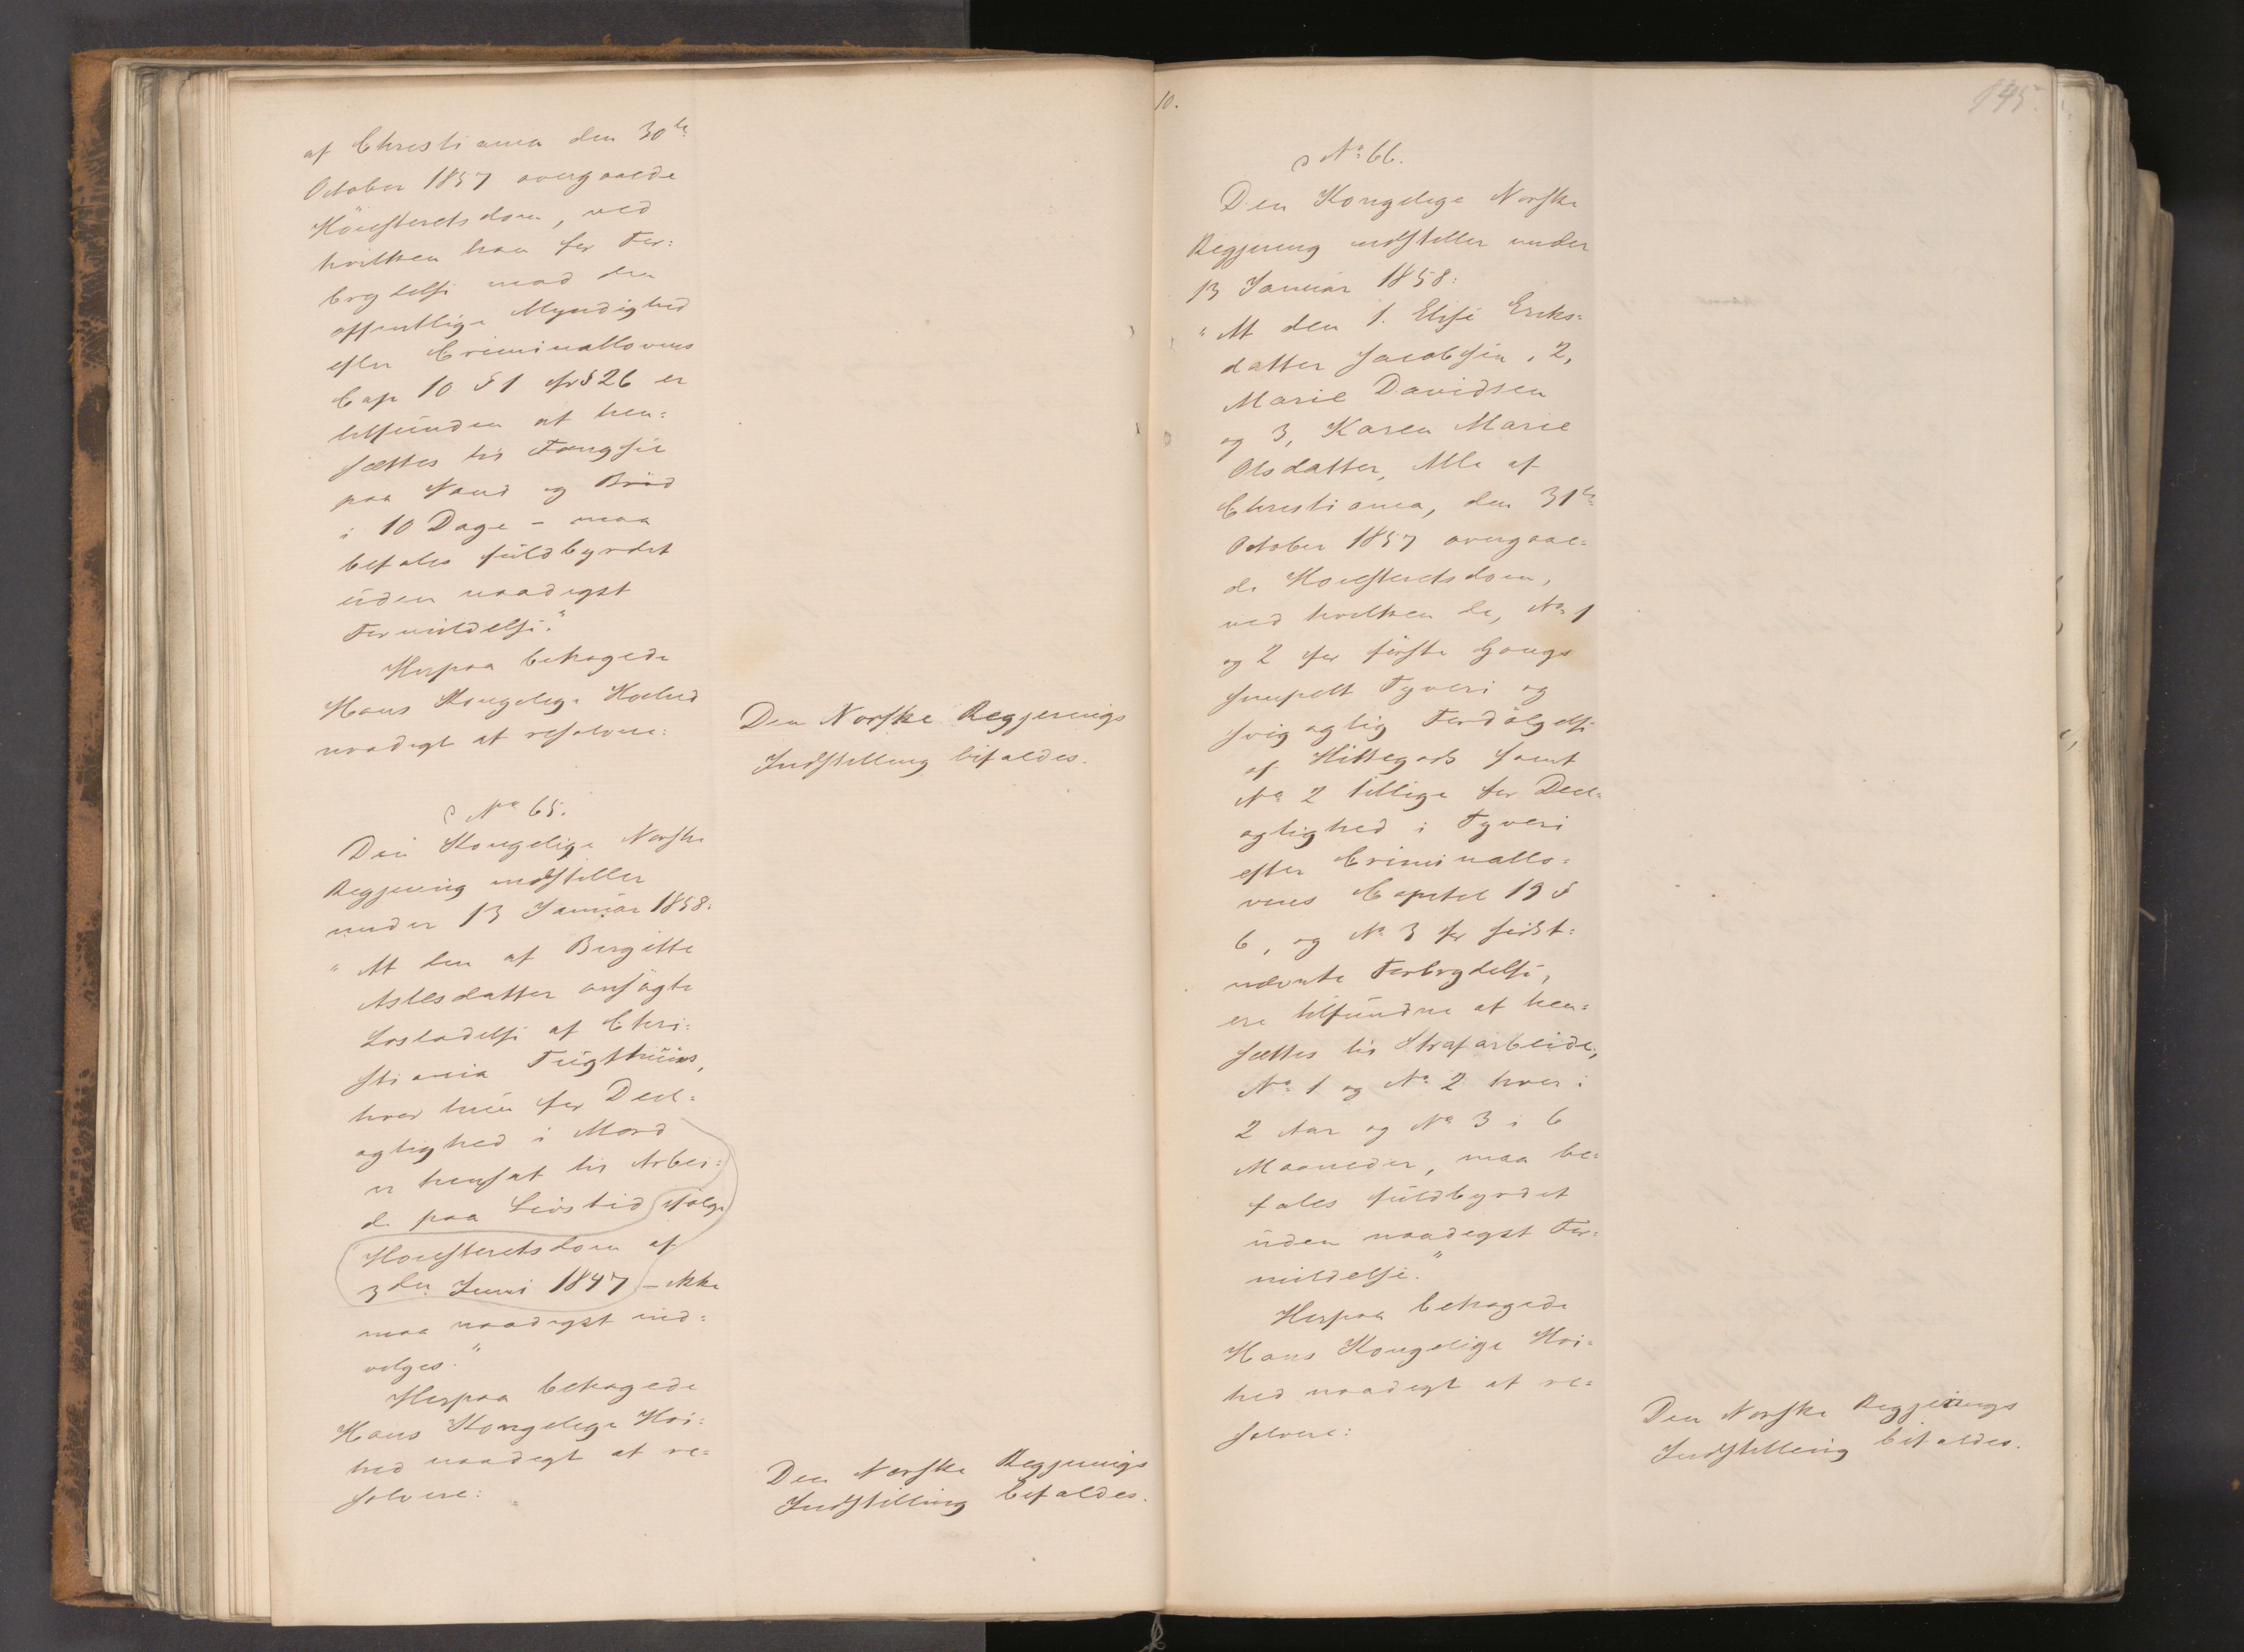 af Christiania den 30te
October 1857 overgaaede
Höiesteretsdom, ved
hvilken han for For:
brydelse mod den
offentlige Myndighed
efter Criminallovens
Cap 10 § 1 cfr § 26 er
tilfunden at hen:
sættes til Fængsel
paa Vand og Bröd
i 10 Dage – maa
befales fuldbyrdet
uden naadigst
Formildelse."
Herpaa behagede
Hans Kongelige Høihed
naadigt at resolvere:
Den Norske Regjerings
Indstilling bifaldes.
No 65.
Den Kongelige Norske
Regjering indstiller
under 13 Januar 1858:
"At den af Birgitte
Aslesdatter ansögte
Losladelse af Chri:
stiania Tugthuus,
hvor hun for Deel:
agtighed i Mord
er hensat til Arbei:
de paa Livstid ifølge
Hoiesteretsdom af
3die Juni 1847 – ikke
maa naadigst ind:
vilges."
Herpaa behagede
Hans Kongelige Hoi:
hed naadigt at re=
solvere:
Den Norske Regjerings
Indstilling bifaldes.
10.
145.
No 66.
Den Kongelige Norske
Regjering indstiller under
13 Januar 1858:
"At den 1. Elise Eriks=
datter Jacobsen, 2,
Marie Davidsen
og 3, Karen Marie
Olsdatter, Alle af
Christiania, den 31te
October 1857 overgaae=
de Hoiesteretsdom,
ved hvilken de, No 1
og 2 for förste Gangs
simpelt Tyveri og
svigagtig Fordölgelse
af Hittegods samt
No 2 tillige for Deel=
agtighed i Tyveri
efter Criminallo=
vens Capitel 19 §
6, og No 3 for sidst:
nævnte Forbrydelse,
ere tilfundne at hen=
sættes til Strafarbeide,
No 1 og No 2 hver i
2 Aar og No 3 i 6
Maaneder, maa be=
fales fuldbyrdet
uden naadigst For=
mildelse."
Herpaa behagede
Hans Kongelige Hoi=
hed naadigt at re=
solvere:
Den Norske Regjerings
Indstilling bifaldes.